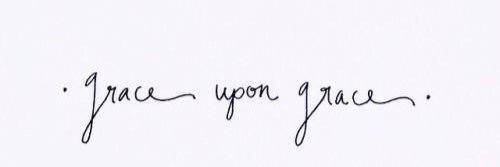 . grace upon grace .